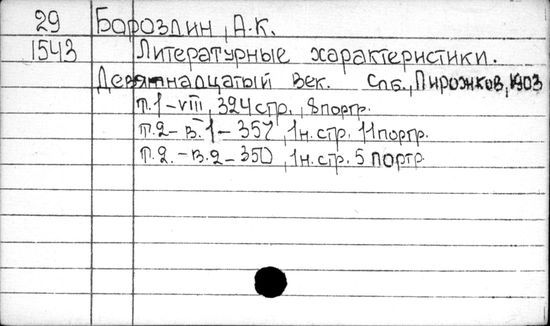 29 Бороздин, А.К.
1543 Литературные характеристики.
Девятнадцатый век. Спб., Пирожков, 1903
т.1-VIII, 324 стр., 8 портр.
т.2-в.1-357, 1н.стр. 11 портр.
т.2.-в.2-350, 1н.стр. 5 портр.